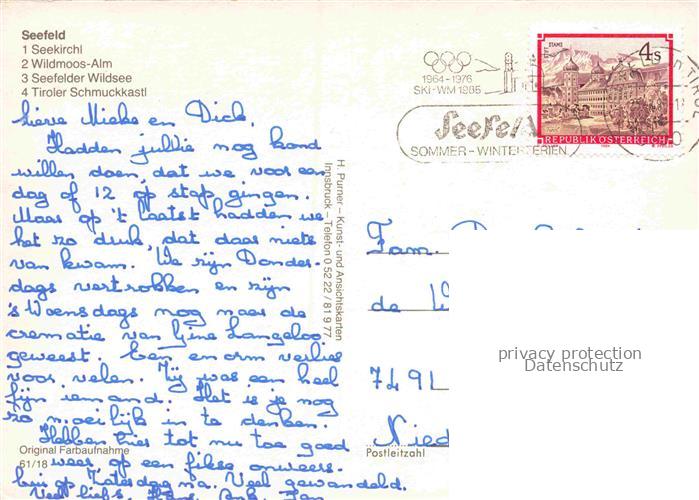 Seefeld
1 Seekirchl
2 Wildmoos-Alm
3 Seefelder Wildsee
4 Tiroler Schmuckkastl
1964-1976
SKI-WM 1985
Seefeld
SOMMER-WINTERFERIEN
STAMS
4s
REPUBLIK ÖSTERREICH
lieve Mieke en Dick,
Hadden jullie nog kond
willen doen, dat we voor een
dag of 12 op stap gingen.
Maar op 't laatst hadden we
het zo druk, dat daar niets
van kwam. We zijn Donder-
dags vertrokken en zijn
's Woensdags nog naar de
crematie van Gine Langeloo
geweest. Een enorm verlies
voor velen. Zij was een heel
fijn iemand. Het is je nog
zo moeilijk in te denken.
Hebben hier tot nu toe goed
weer, op een fikse onweers-
bui op Zaterdag na. Veel gewandeld.
Veel liefs, Jan
H. Purner – Kunst- und Ansichtskarten
Innsbruck – Telefon 0 52 22 / 81 9 77
Fam. D
de W
749L
Nied
Postleitzahl
privacy protection
Datenschutz
Original Farbaufnahme
61/18